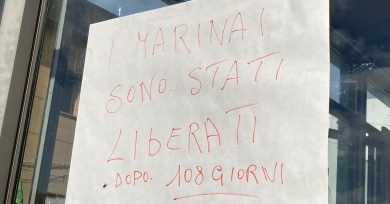 I MARINAI
SONO. STATI
LIBERATI
. DOPO. 108 GIORNI